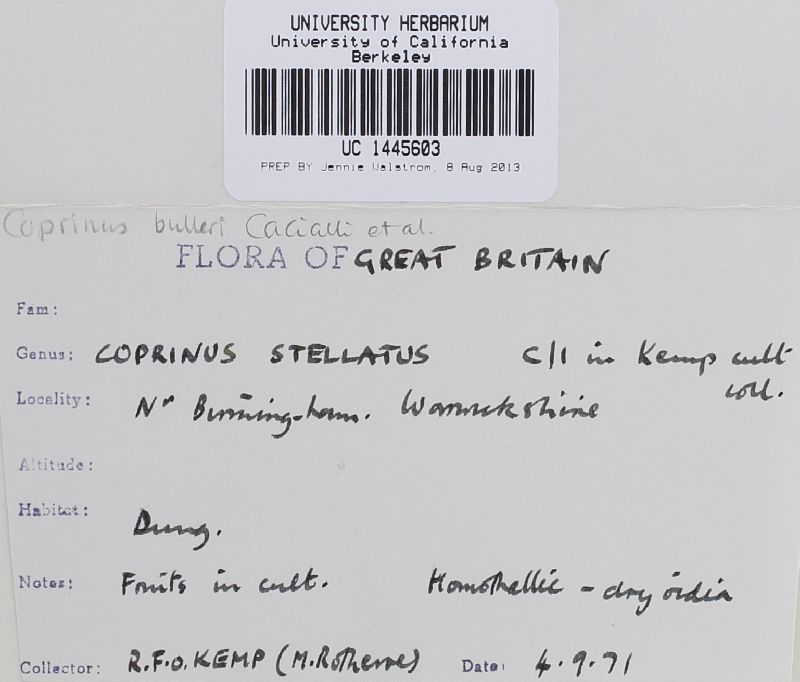 UNIVERSITY HERBARIUM
University of California
Berkeley
UC 1445603
PREP BY Jennie Walstrom, 8 Aug 2013
Coprinus bulleri Cacialli et al.
FLORA OF GREAT BRITAIN
Fam:
Genus: COPRINUS STELLATUS C/1 in Kemp cult coll.
Locality: Nr Birmingham. Warwickshire
Altitude:
Habitat: Dung.
Notes: Fruits in cult. Homothallic - dry oidia
Collector: R.F.O. KEMP (M. Rotheroe) Date: 4.9.71